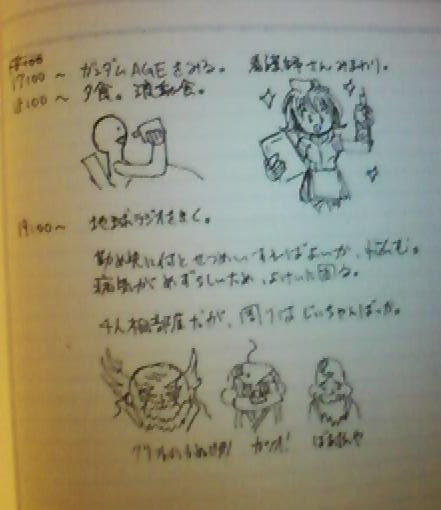 17:00～ ガンダムAGEをみる。 看護師さんみまわり。
18:00～ 夕食。流動食。
19:00～ 地球ラジオをきく。
勤め先に何とせつめいすればよいか、悩む。
病気がめずらしいため、よけいに困る。
4人相部屋だが、周りはじいちゃんばっか。
カツオ!